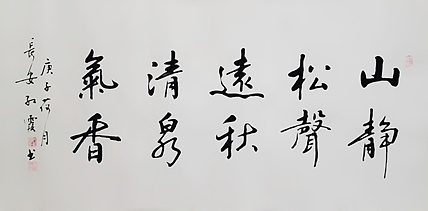 山静
松聲
遠秋
清泉
氣香
庚子荷月
長安紅霞书